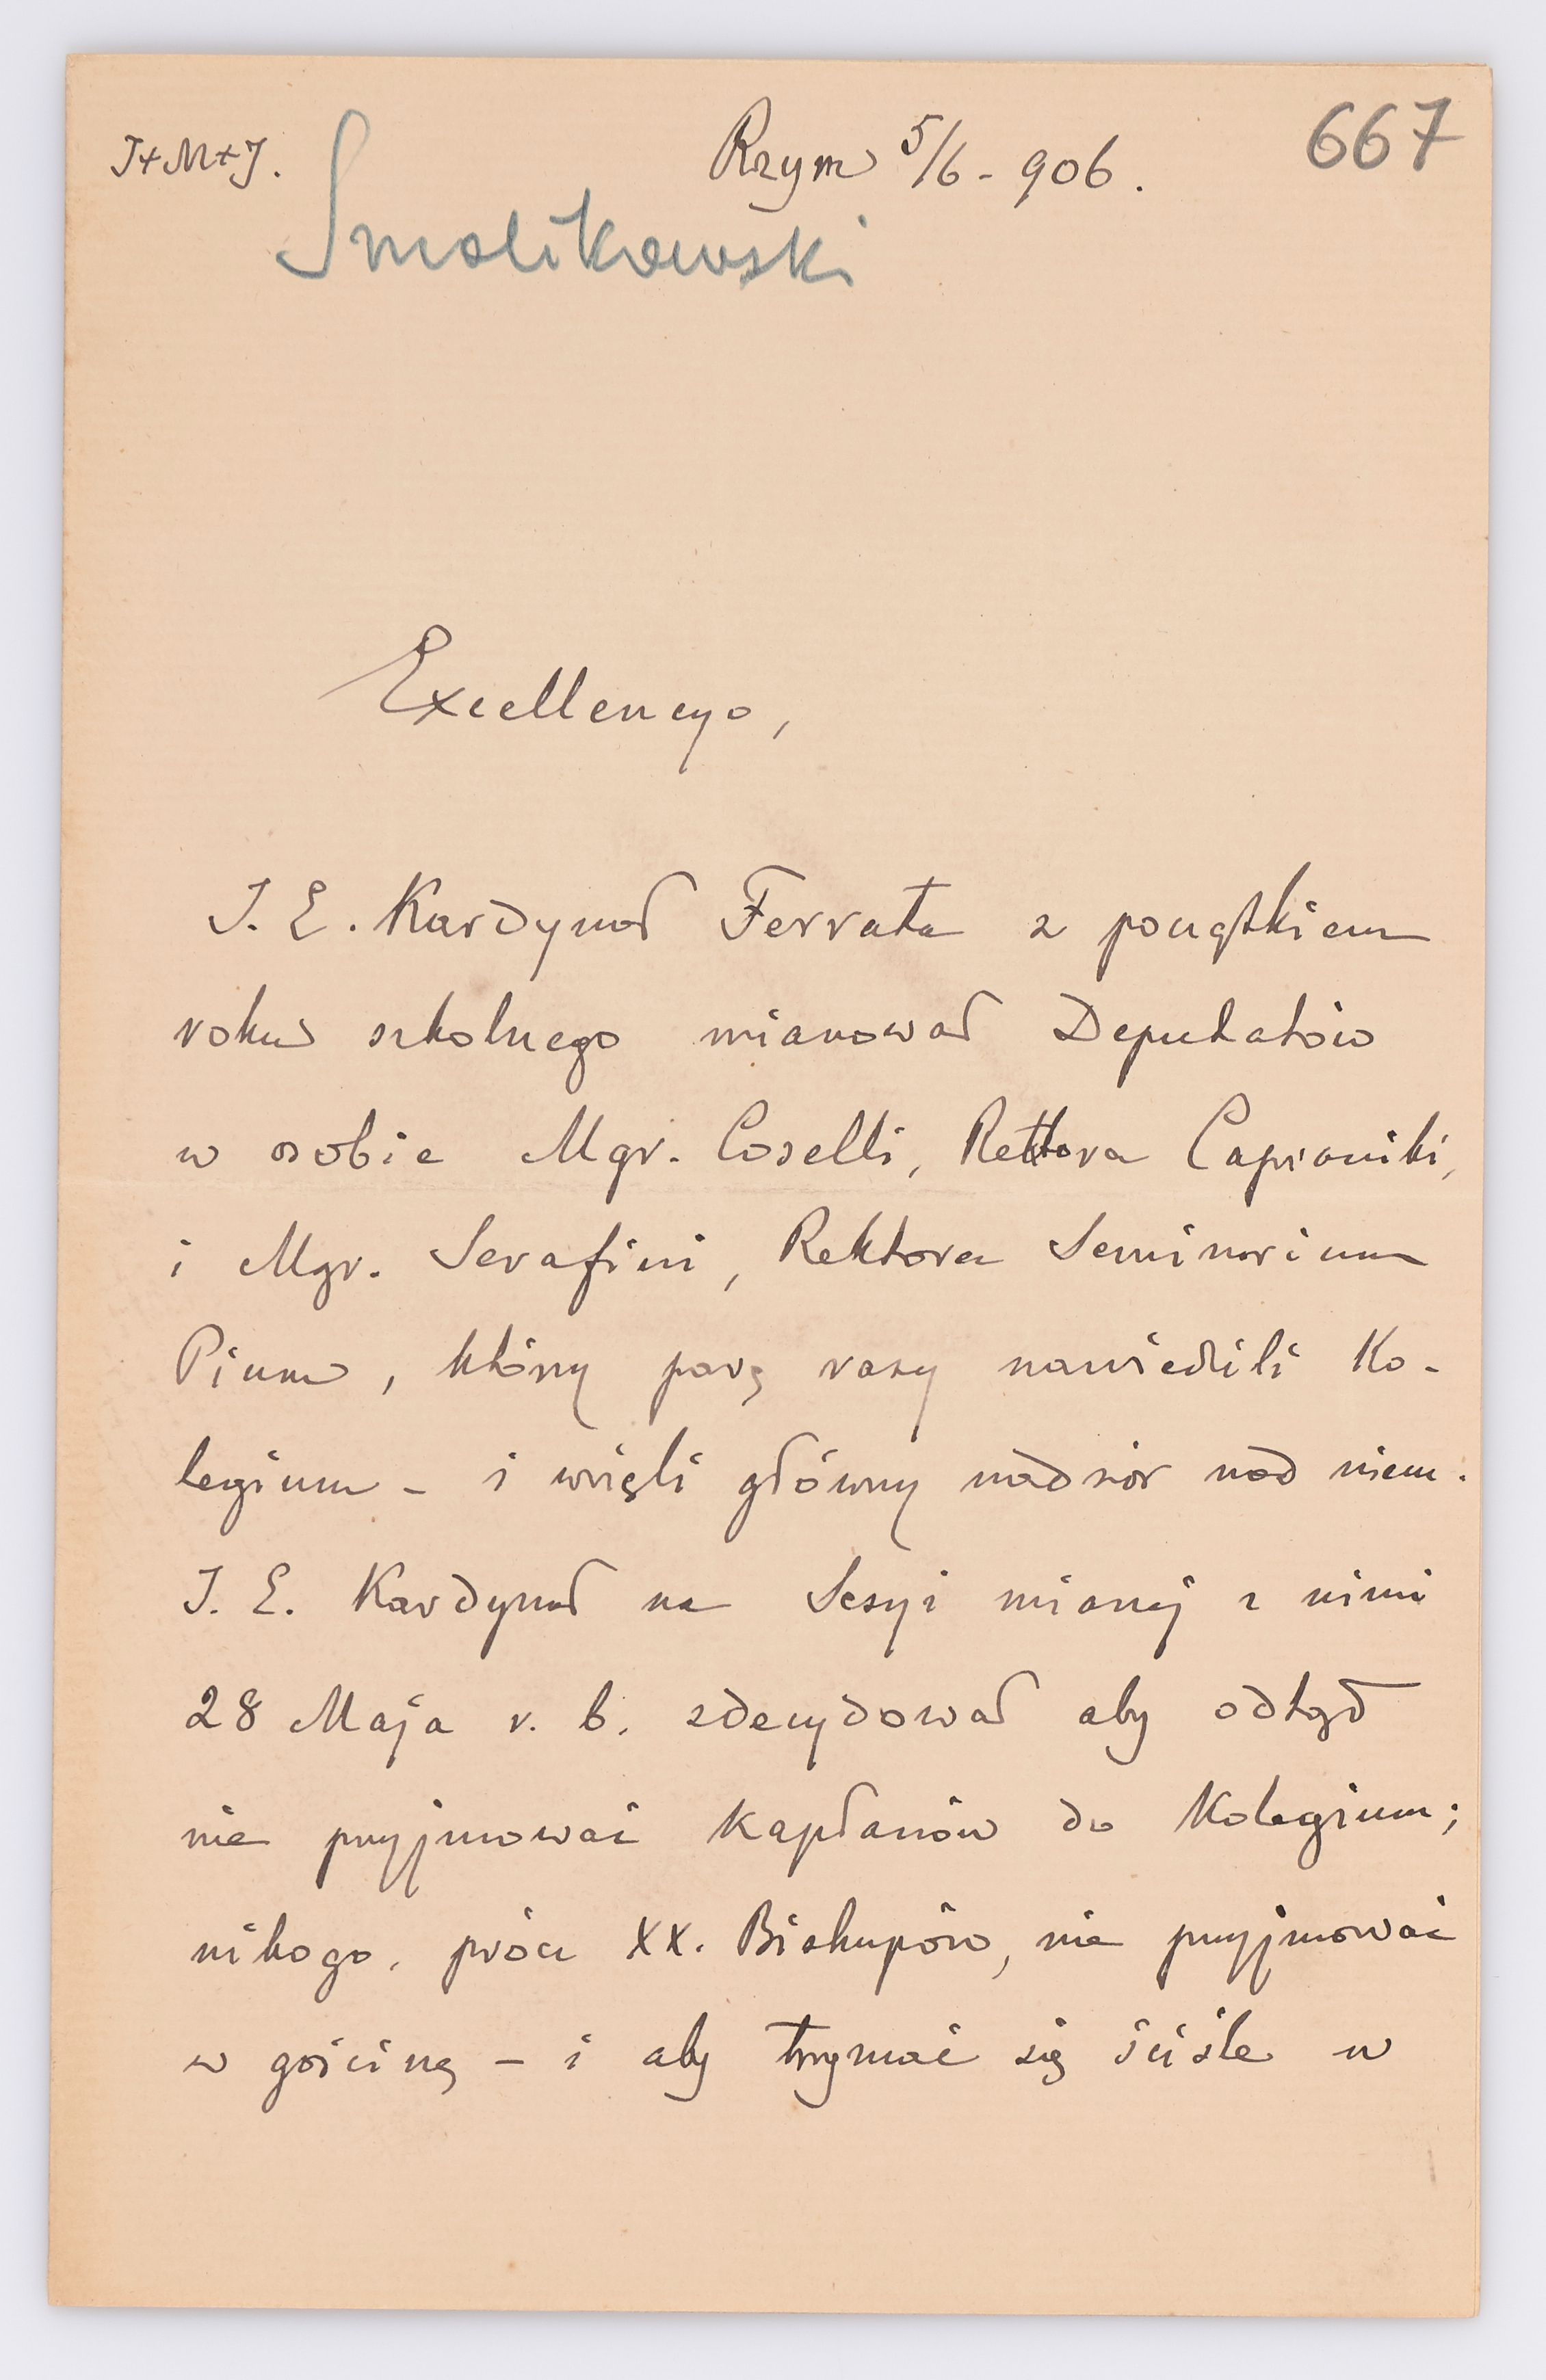 J+M+J.
Rzym 5/6 - 906.
667
Smolikowski
Excellencyo,
J. E. Kardynał Ferrata z początkiem
roku szkolnego mianował Deputatów
w osobie Mgr. Coselli, Rektora Capraniki,
i Mgr. Serafini, Rektora Seminarium
Pium, którzy parę razy nawiedzili Ko-
legium - i wzięli główny nadzór nad niem.
J. E. Kardynał na Sesyi mianej z nimi
28 Maja r. b. zdecydował aby odtąd
nie przyjmować kapłanów do Kolegium;
nikogo, prócz XX. Biskupów, nie przyjmować
w gościnę - i aby trzymać się ściśle w